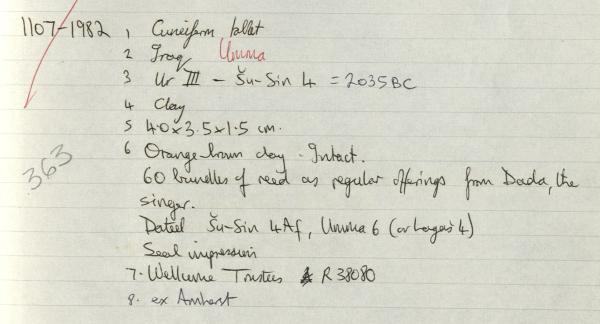 1107-1982 1 Cuneiform tablet
2 Iraq Umma
3 Ur III - Šu-Sin 4 = 2035 BC
4 Clay
5 4.0 x 3.5 x 1.5 cm.
6 Orange-brown clay. Intact.
363
60 bundles of reed as regular offerings from Dada, the
singer.
Dated Šu-Sin 4 Af, Umma 6 (or Lagaš 4)
Seal impression
7. Wellcome Trustees R 38080
8. ex Amherst